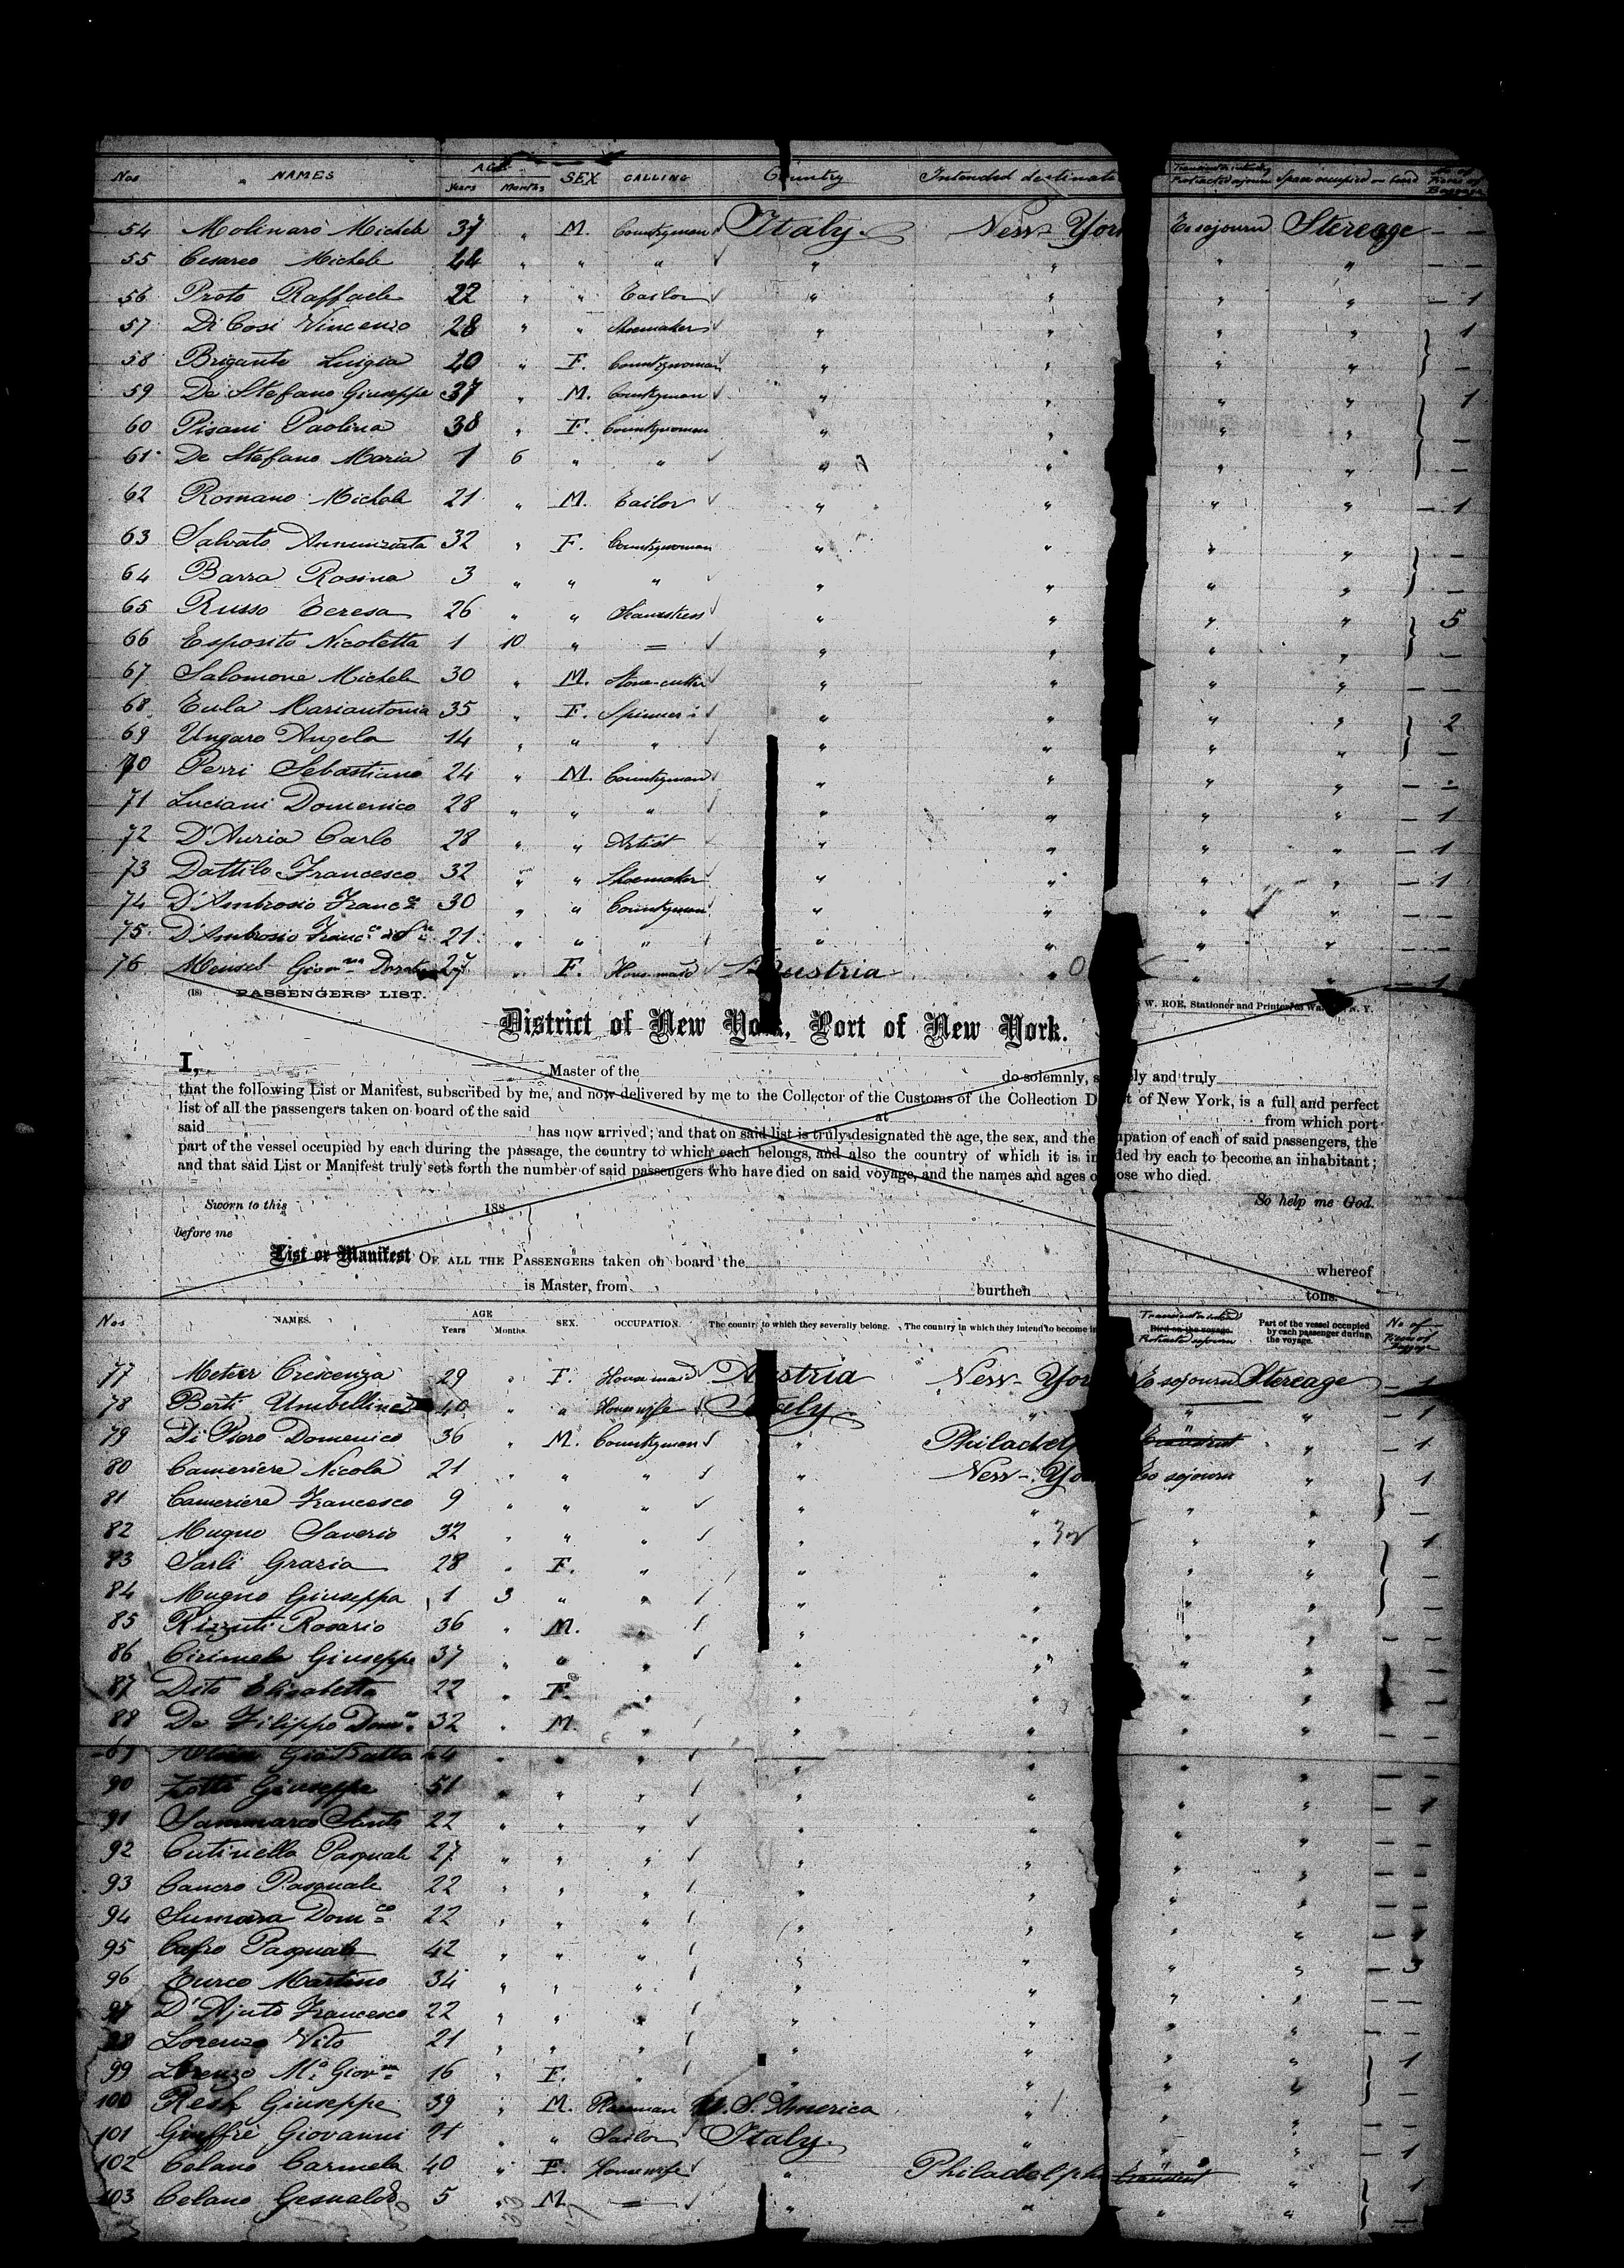 Nos NAMES AGE Years Months SEX CALLING Country Intended destinat Protracted sojourn Space occupied on board
54 Molinaro Michele 37 " M. Countryman Italy New-Yor To sojourn Stereage — —
55 Cesareo Michele 44 " " " " " " " — —
56 Proto Raffaele 22 " " Tailor " " " " — 1
57 Di Cosi Vincenzo 28 " " Shoemaker " " " " 1
58 Brigante Luigia 40 " F. Countrywoman " " " " —
59 De Stefano Giuseppe 37 " M. Countryman " " " " 1
60 Pisani Paolina 38 " F. Countrywoman " " " " —
61 De Stefano Maria 1 6 " " " " " " —
62 Romano Michele 21 " M. Tailor " " " " — 1
63 Salvato Annunziata 32 " F. Countrywoman " " " " —
64 Barra Rosina 3 " " " " " " " —
65 Russo Teresa 26 " " Seamstress " " " " 5
66 Esposito Nicoletta 1 10 " = " " " " —
67 Salomone Michele 30 " M. Stone-cutter " " " " — —
68 Tula Mariantonia 35 " F. Spinner " " " " 2
69 Ungaro Angela 14 " " " " " " " —
70 Perri Sebastiano 24 " M. Countryman " " " " — —
71 Luciani Domenico 28 " " " " " " " — 1
72 D'Auria Carlo 28 " " Artist " " " " — 1
73 Dattilo Francesco 32 " " Shoemaker " " " " — 1
74 D'Ambrosio Franco 30 " " Countryman " " " " — —
75 D'Ambrosio Franc.co 21 " " " " " " " — —
76 Giov.na 27 " F. House maid Austria " " " — 1
(18) PASSENGERS' LIST. W. ROE, Stationer and Printer, N. Y.
District of New York, Port of New York.
I, Master of the do solemnly, s ly and truly
that the following List or Manifest, subscribed by me, and now delivered by me to the Collector of the Customs of the Collection D t of New York, is a full and perfect
list of all the passengers taken on board of the said at from which port
said has now arrived; and that on said list is truly designated the age, the sex, and the upation of each of said passengers, the
part of the vessel occupied by each during the passage, the country to which each belongs, and also the country of which it is in ded by each to become an inhabitant;
and that said List or Manifest truly sets forth the number of said passengers who have died on said voyage, and the names and ages o ose who died.
Sworn to this 188 So help me God.
before me
List or Manifest OF ALL THE PASSENGERS taken on board the whereof
is Master, from burthen tons.
Nos NAMES. AGE Years Months. SEX. OCCUPATION. The country to which they severally belong. The country in which they intend to become in Died on the voyage. Protracted sojourn Part of the vessel occupied by each passenger during the voyage. No of Pieces of Baggage
77 Crescenza 29 " F. House maid Austria New-Yor To sojourn Stereage — 1
78 Berti Umbellina 40 " " Housewife Italy " " " — 1
79 Di Piero Domenico 36 " M. Countryman " Philadelp Transient " — 1
80 Cameriere Nicola 21 " " " " New-Yo To sojourn " 1
81 Cameriere Francesco 9 " " " " " " " —
82 Mugno Saverio 32 " " " " " " " 1
83 Sarli Grazia 28 " F. " " " " " —
84 Mugno Giuseppa 1 3 " " " " " " —
85 Rizzuti Rosario 36 " M. " " " " " — —
86 Cirimele Giuseppe 37 " " " " " " " —
87 Dito Elisabetta 22 " F. " " " " " —
88 De Filippo Dom.co 32 " M. " " " " " — —
89 Gio Batta 54 " " " " " " " — —
90 Zotti Giuseppe 51 " " " " " " " — 1
91 Sammarco Santo 22 " " " " " " " — —
92 Cutinella Pasquale 27 " " " " " " " — —
93 Cancro Pasquale 22 " " " " " " " — —
94 Sumara Dom.co 22 " " " " " " " — 1
95 Cafro Pasquale 42 " " " " " " " — 3
96 Turco Martino 34 " " " " " " " — —
97 D'Ajuto Francesco 22 " " " " " " " — —
98 Lorenzo Vito 21 " " " " " " " 1
99 Lorenzo M.a Giov.na 16 " F. " " " " " —
100 Resh Giuseppe 39 " M. U. S. America " " " — —
101 Giuffrè Giovanni 21 " " Sailor Italy " " " — 1
102 Celano Carmela 40 " F. Housewife " Philadelph Transient " 1
103 Celano Gesualdo 5 " M. = " " " " —